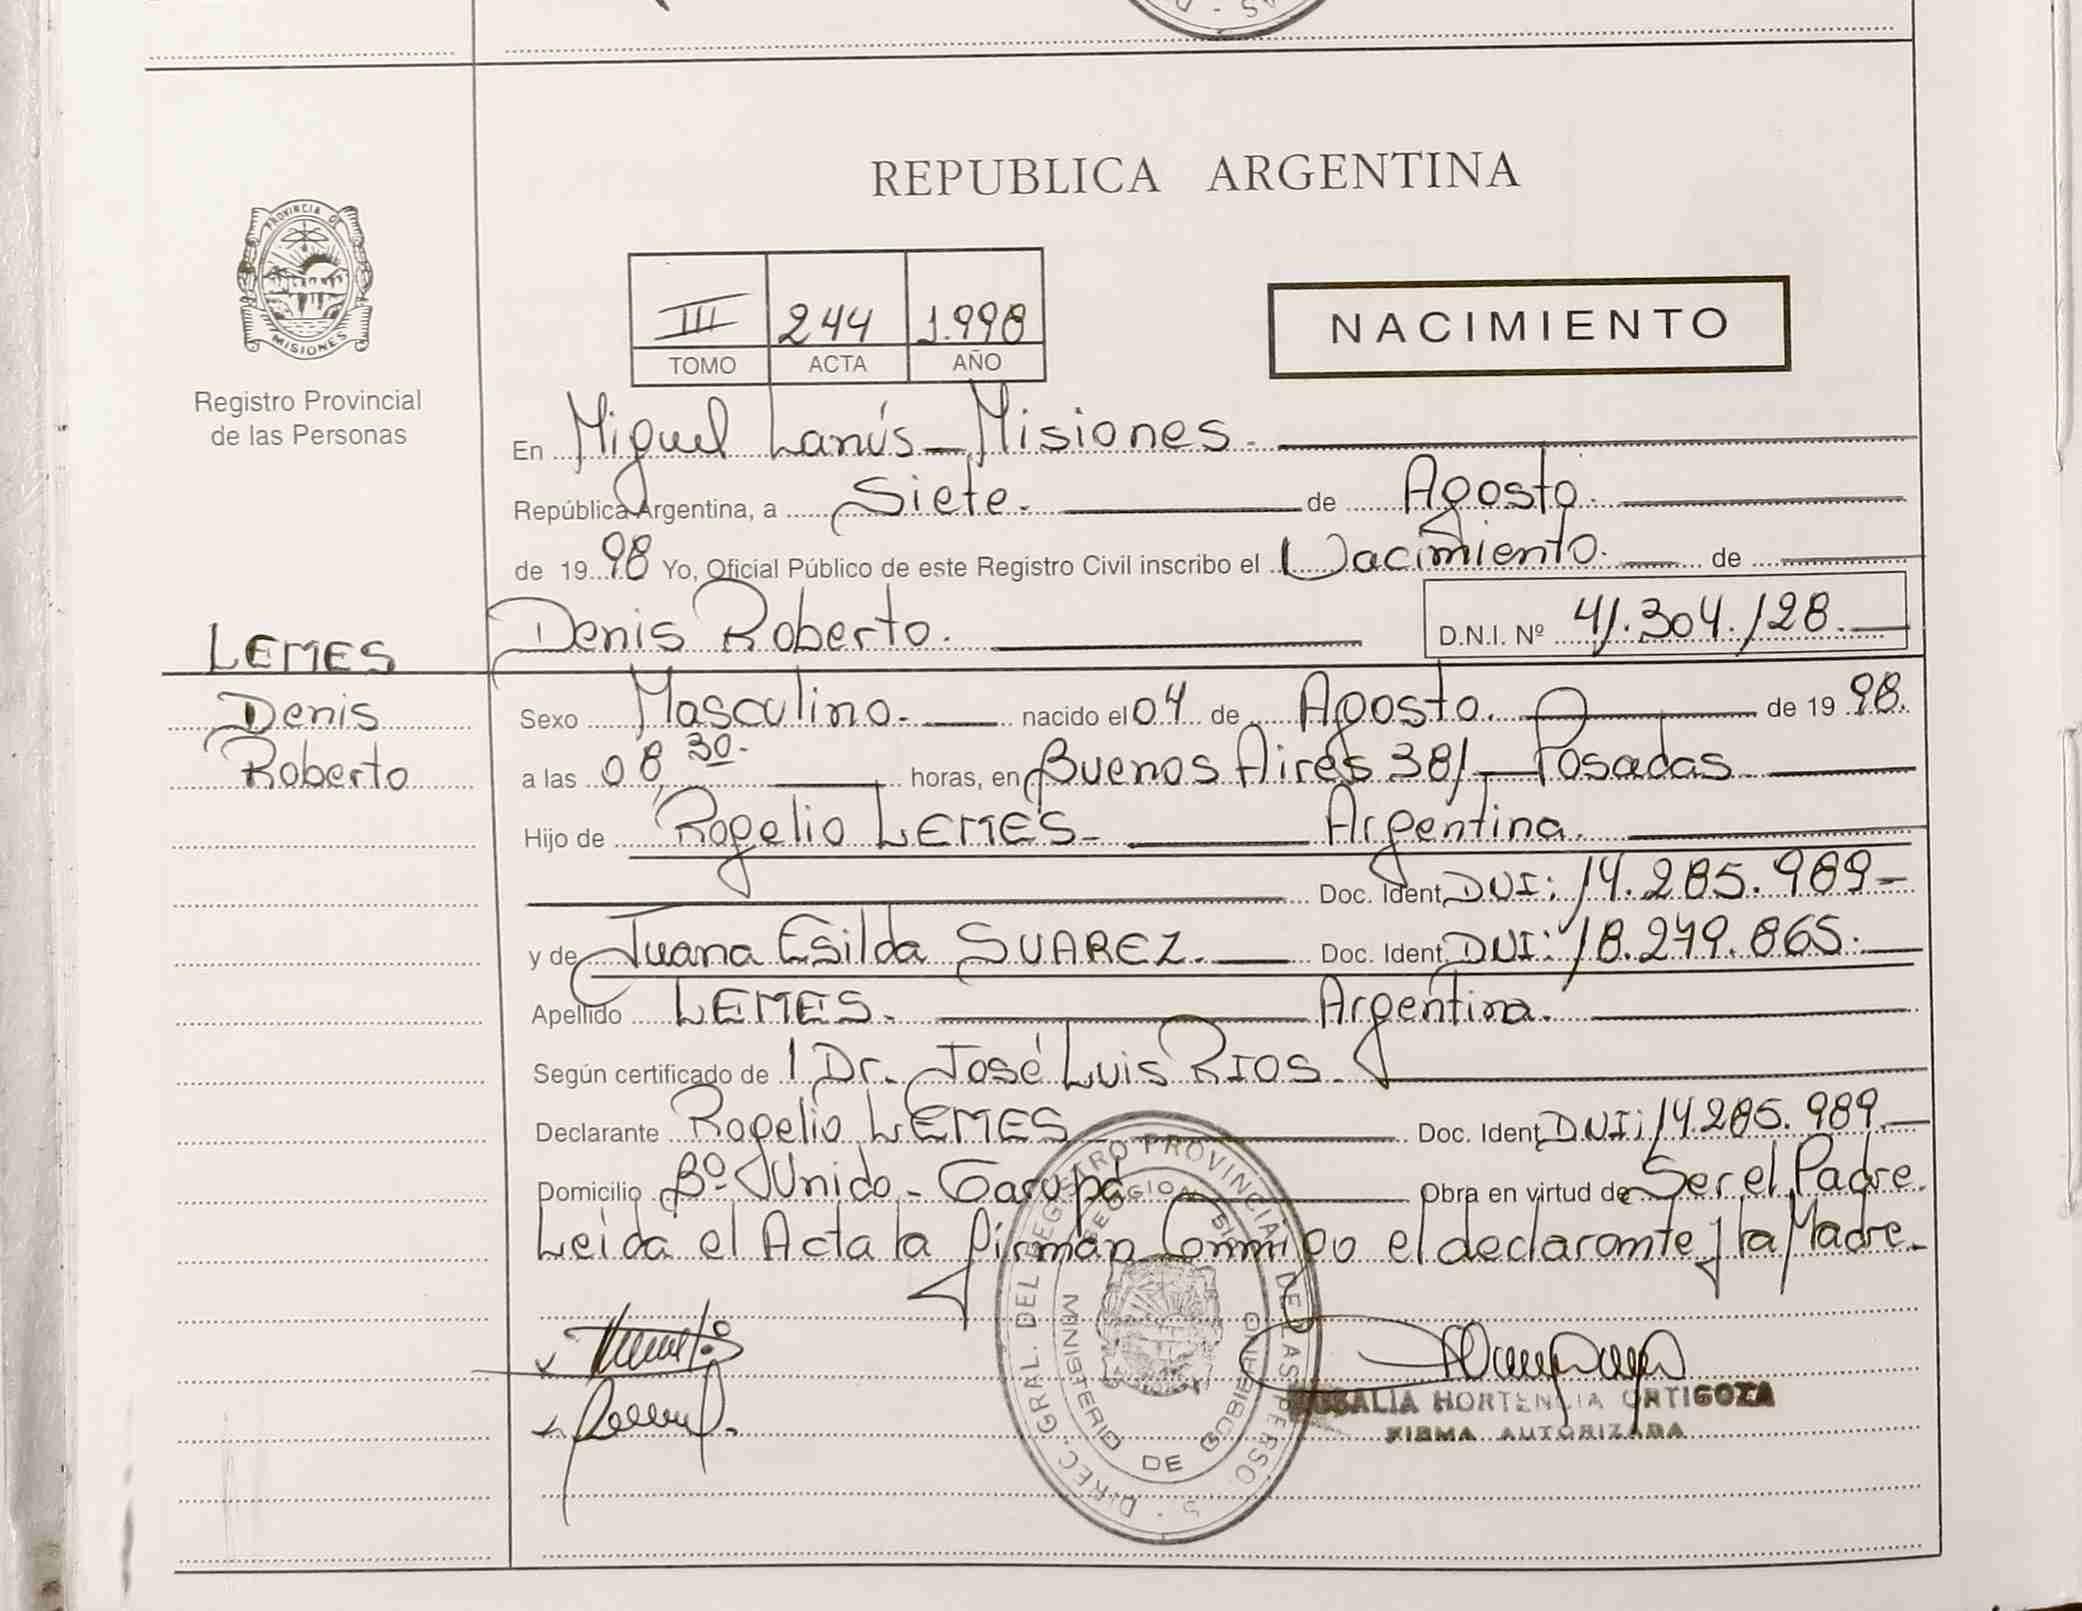 REPUBLICA ARGENTINA
PROVINCIA DE
MISIONES
Registro Provincial
de las Personas
III 244 1.998
TOMO ACTA AÑO
NACIMIENTO
En Miguel Lanús - Misiones.
República Argentina, a Siete. de Agosto.
de 19 98 Yo, Oficial Público de este Registro Civil inscribo el Nacimiento. de
Denis Roberto. D.N.I. Nº 41.304.128.
LEMES
Denis
Roberto
Sexo Masculino. nacido el 04 de Agosto. de 19 98.
a las 08,30. horas, en Buenos Aires 381 - Posadas.
Hijo de Rogelio LEMES- Argentina.
Doc. Ident. DNI: 14.285.989-
y de Juana Esilda SUAREZ. Doc. Ident. DNI: 18.279.865.
Apellido LEMES. Argentina.
Según certificado de 1 Dr. José Luis RIOS.
Declarante Rogelio LEMES Doc. Ident. DNI: 14.285.989
Domicilio Bº Unido - Garupá Obra en virtud de Ser el Padre.
Leida el Acta la firman Conmigo el declarante y la Madre.
DIREC. GRAL. DEL REGISTRO PROVINCIAL DE LAS PERSO
MINISTERIO DE GOBIERNO
ROSALIA HORTENCIA ORTIGOZA
FIRMA AUTORIZADA